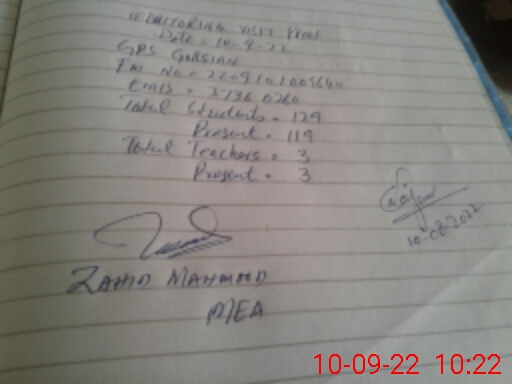 MONITORING VISIT PROOF
Date = 10-9-22
GPS GARSIAN
EMIS = 37360260
Total Students = 129
Present = 119
Total Teachers = 3
Present = 3
10-08-2022
ZAHID MAHMOOD
MEA
10-09-22 10:22